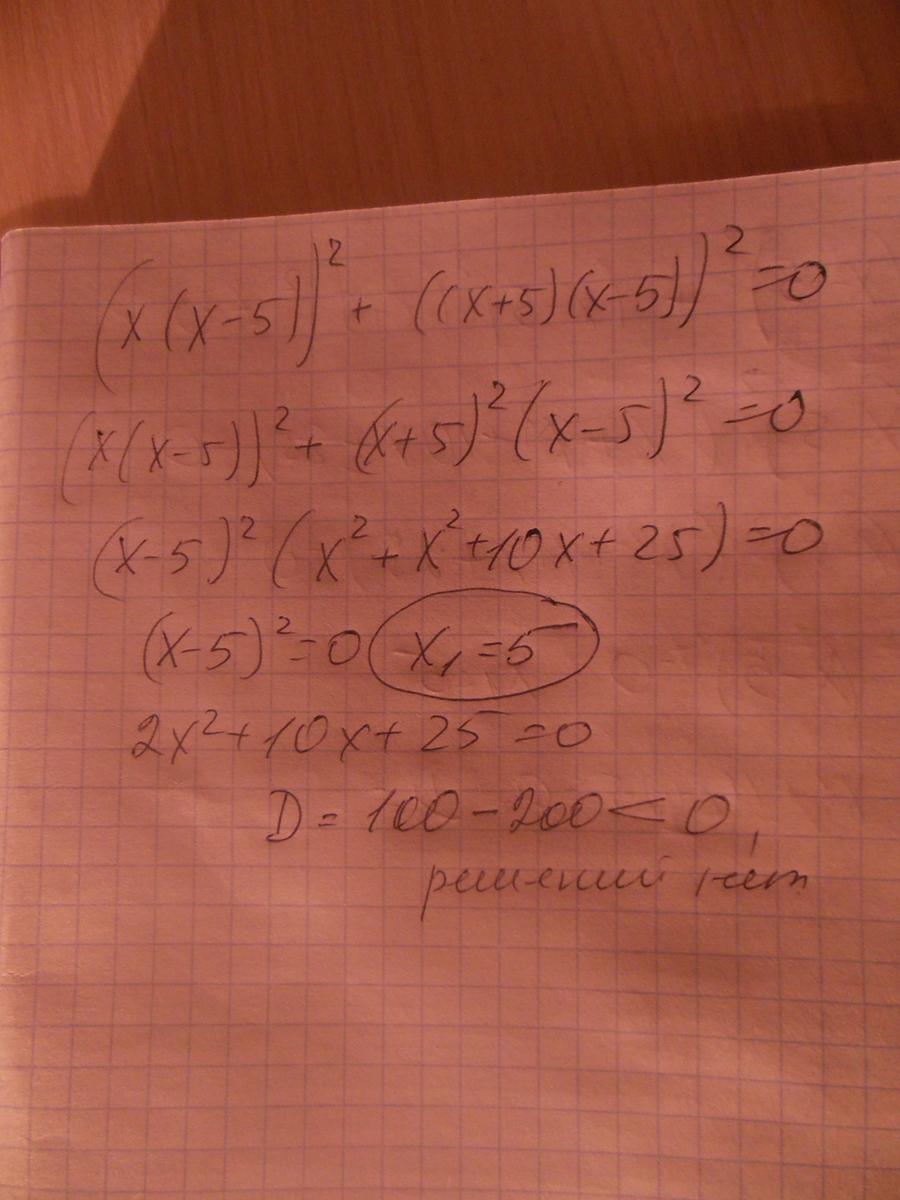 (x(x-5))² + ((x+5)(x-5))² =0
(x(x-5))² + (x+5)²(x-5)² =0
(x-5)² (x²+x²+10x+25)=0
(x-5)²=0 x₁=5
2x²+10x+25=0
D=100-200<0,
решений нет